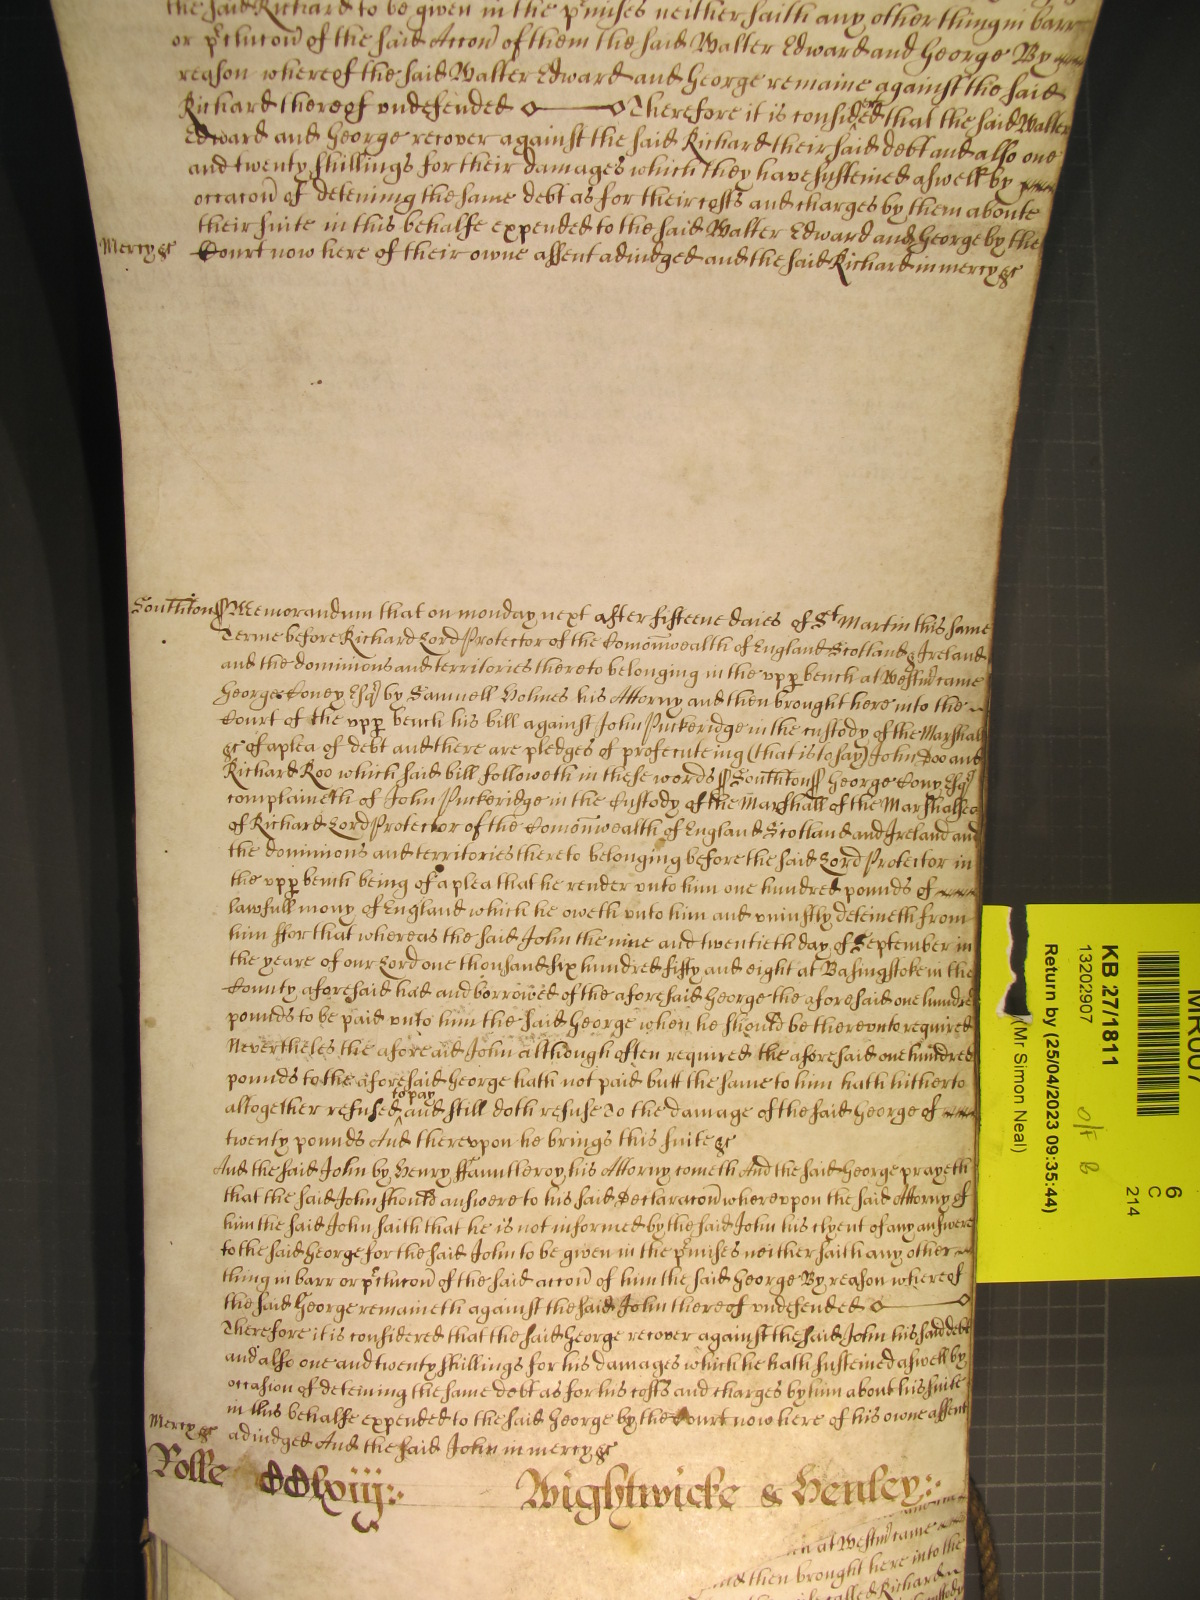 the said Richard to be given in the p'mises neither saith any other thing in barr
or p'clucon of the said Accon of them the said Walter Edward and George By
reason whereof the said Walter Edward and George remaine against the said
Richard thereof undefended Therefore it is considered that the said Walter
Edward and George recover against the said Richard their said debt and also one
and twenty shillings for their damages which they have susteined aswell by
occacon of deteining the same debt as for their costs and charges by them aboute
their suite in this behalfe expended to the said Walter Edward and George by the
Mercy &c Court now here of their owne assent adiudged and the said Richard in mercy &c
Southton ss Memorandum that on monday next after fifteene daies of St Martin this same
Terme before Richard Lord Protector of the Comonwealth of England Scotland & Ireland
and the dominions and territories thereto belonging in the upp bench at Westmr came
George Coney Esqr by Samuell Holmes his Attorny and then brought here into the
Court of the upp bench his bill against John Puckeridge in the custody of the Marshal
&c of a plea of debt and there are pledges of prosecuteing (that is to say) John Doo and
Richard Roo which said bill followeth in these words ss Southton ss George Cony Esqr
complaineth of John Puckeridge in the Custody of the Marshall of the Marshalsea
of Richard Lord Protector of the Comonwealth of England Scotland and Ireland and
the dominions and territories thereto belonging before the said Lord Protector in
the upp bench being of a plea that he render unto him one hundred pounds of
lawfull mony of England which he oweth unto him and uniustly deteineth from
him ffor that whereas the said John the nine and twentieth day of September in
the yeare of our Lord one thousand six hundred fifty and eight at Basingstoke in the
County aforesaid had and borrowed of the aforesaid George the aforesaid one hundred
pounds to be paid unto him the said George when he should be thereunto required
Nevertheles the aforesaid John although often required the aforesaid one hundred
pounds to the aforesaid George hath not paid butt the same to him hath hitherto
altogether refused to pay and still doth refuse To the damage of the said George of
twenty pounds And thereupon he brings this suite &c
And the said John by Henry ffauntleroy his Attorny cometh And the said George prayeth
that the said John should answere to his said Declaracon whereupon the said Attorny of
him the said John saith that he is not informed by the said John his clyent of any answere
to the said George for the said John to be given in the p'mises neither saith any other
thing in barr or p'clucon of the said accon of him the said George By reason whereof
the said George remaineth against the said John thereof undefended
Therefore it is considered that the said George recover against the said John his said debt
and also one and twenty shillings for his damages which he hath susteined aswell by
occasion of deteining the same debt as for his costs and charges by him about his suite
in this behalfe expended to the said George by the Court now here of his owne assent
Mercy &c adiudged And the said John in mercy &c
Rolle CClxiij: Wightwicke & Henley:
at Westmr came
and then brought here into the
called Richard
KB 27/1811
13202907
Return by (25/04/2023 09:35:44)
(Mr Simon Neal)
6
C
214